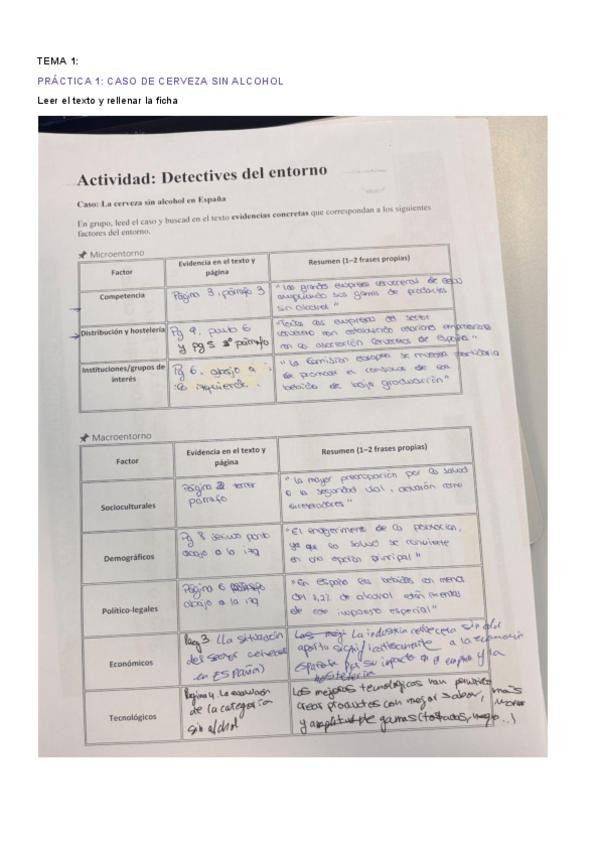 TEMA 1:
PRÁCTICA 1: CASO DE CERVEZA SIN ALCOHOL
Leer el texto y rellenar la ficha
Actividad: Detectives del entorno
Caso: La cerveza sin alcohol en España
En grupo, leed el caso y buscad en el texto evidencias concretas que correspondan a los siguientes
factores del entorno.
Microentorno
Factor
Evidencia en el texto y
página
Resumen (1–2 frases propias)
Competencia
Página 3, párrafo 3
"Las grandes empresas cerveceras de
ampliando sus gamas de productos
sin alcohol"
Distribución y hostelería
Pg 9, punto 6
y pg 5 3º párrafo
"Todas las empresas del sector
cervecero
con la asociación cerveceros de España"
Instituciones/grupos de
interés
Pg 6, abajo a
la izquierda
"La Comisión europea se muestra partidaria
de promover el consumo de
bebida de baja graduación"
Macroentorno
Factor
Evidencia en el texto y
página
Resumen (1–2 frases propias)
Socioculturales
Página 2 tercer
párrafo
"La mayor preocupación por la salud
o la seguridad vial, actúan como
aceleradores"
Demográficos
Pg 8 punto
abajo a la izq
"El envejecimiento de la población,
ya que la salud se convierte
en una opción principal"
Político-legales
Página 6
abajo a la izq
"En España las bebidas con menos
del 1,2% de alcohol están exentas
de este impuesto especial"
Económicos
Pag 3 (La situación
del sector cervecero
en ESPAÑA)
La industria cervecera sin alcohol
aporta significativamente a la economía
española por su impacto en el empleo y la
hostelería
Tecnológicos
Página 4. La evolución
de la categoría
sin alcohol
Las mejoras tecnológicas han permitido
crear productos con mejor sabor, más
y amplitud de gamas (tostadas, negra...)